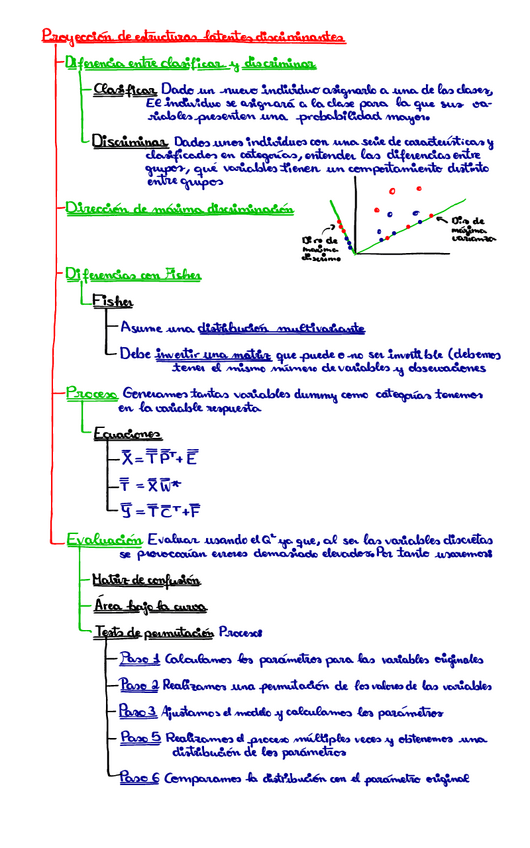 Proyección de estructuras latentes discriminantes
Diferencia entre clasificar y discriminar
Clasificar Dado un nuevo individuo asignarlo a una de las clases,
El individuo se asignará a la clase para la que sus va-
riables presenten una probabilidad mayor.
Discriminar Dados unos individuos con una serie de características y
clasificados en categorías, entender las diferencias entre
grupos, qué variables tienen un comportamiento distinto
entre grupos
Dirección de máxima discriminación
Diro de
maxima
discrimo
Diro de
máxima
varianza
Diferencias con Fisher
Fisher
Asume una distribución multivariante
Debe invertir una matriz que puede o no ser invertible (debemos
tener el mismo número de variables y observaciones
Proceso Generamos tantas variables dummy como categorías tenemos
en la variable respuesta
Ecuaciones
X = T Pᵀ + E
T = X W*
Y = T Cᵀ + F
Evaluación Evaluar usando el Q² ya que, al ser las variables discretas
se provocarían errores demasiado elevados. Por tanto usaremos:
Matriz de confusión
Área bajo la curva
Tests de permutación Proceso:
Paso 1 Calculamos los parámetros para las variables originales
Paso 2 Realizamos una permutación de los valores de las variables
Paso 3 Ajustamos el modelo y calculamos los parámetros
Paso 5 Realizamos el proceso múltiples veces y obtenemos una
distribución de los parámetros
Paso 6 Comparamos la distribución con el parámetro original